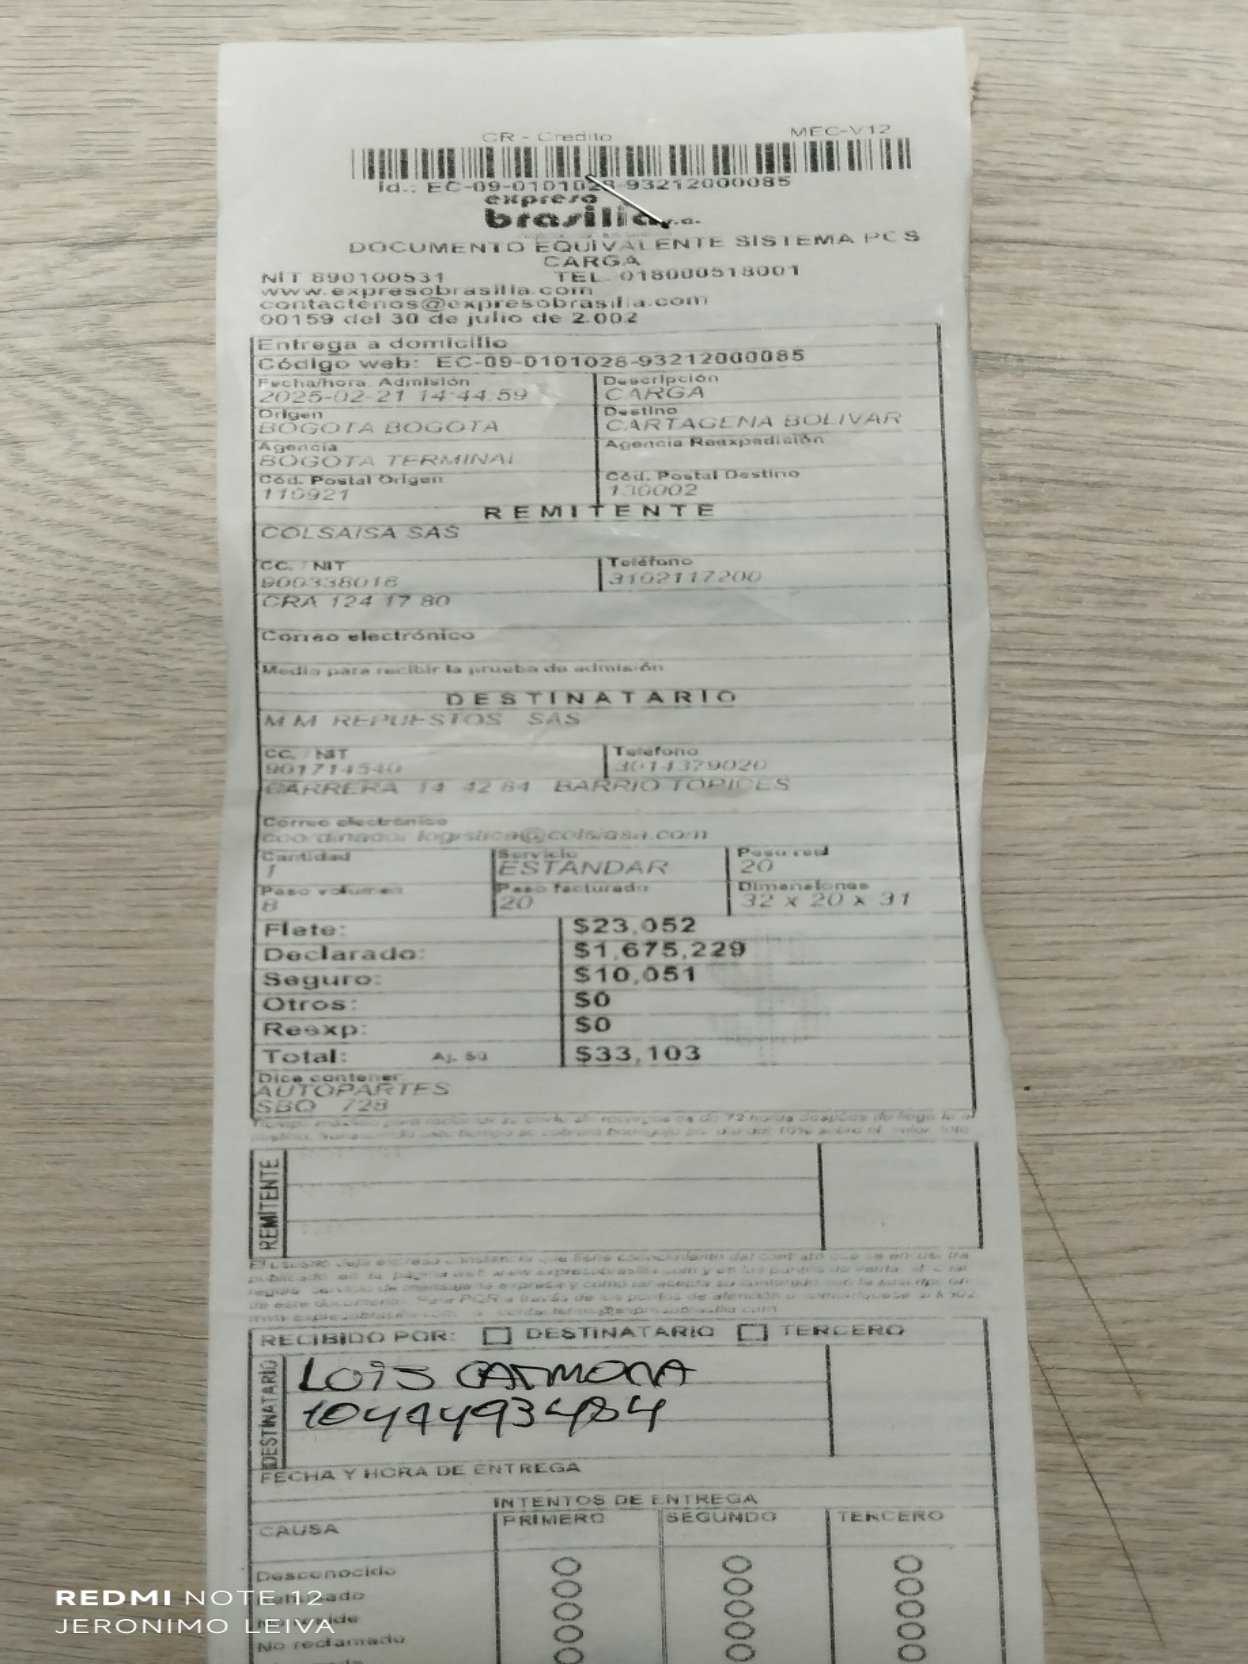 CR - Credito MEC-V12
Id.: EC-09-0101028-93212000085
expreso
brasilia s.a.
DOCUMENTO EQUIVALENTE SISTEMA POS
CARGA
NIT 890100531 TEL. 018000518001
www.expresobrasilia.com
contactenos@expresobrasilia.com
00159 del 30 de julio de 2.002
Entrega a domicilio
Código web: EC-09-0101028-93212000085
Fecha/hora. Admisión Descripción
2025-02-21 14:44:59 CARGA
Origen Destino
BOGOTA BOGOTA CARTAGENA BOLIVAR
Agencia Agencia Reexpedisión
BOGOTA TERMINAL
Cód. Postal Origen Cód. Postal Destino
110921 130002
REMITENTE
COLSAISA SAS
CC. / NIT Teléfono
900338016 3102117200
CRA 124 17 80
Correo electrónico
Medio para recibir la prueba de admisión
DESTINATARIO
M M REPUESTOS SAS
CC. / NIT Teléfono
901714540 3014379020
CARRERA 14 42 84 BARRIO TOPICES
Correo electrónico
coordinador.logistica@colsiasa.com
Cantidad Servicio Peso real
1 ESTANDAR 20
Peso volumen Peso facturado Dimensiones
8 20 32 x 20 x 31
Flete: $23,052
Declarado: $1,675,229
Seguro: $10,051
Otros: $0
Reexp: $0
Total: Aj. $0 $33,103
Dice contener
AUTOPARTES
SBQ 728
REMITENTE
RECIBIDO POR: DESTINATARIO TERCERO
DESTINATARIO
LOIS CARMONA
1044493484
FECHA Y HORA DE ENTREGA
INTENTOS DE ENTREGA
CAUSA PRIMERO SEGUNDO TERCERO
Desconocido
No reclamado
REDMI NOTE 12
JERONIMO LEIVA